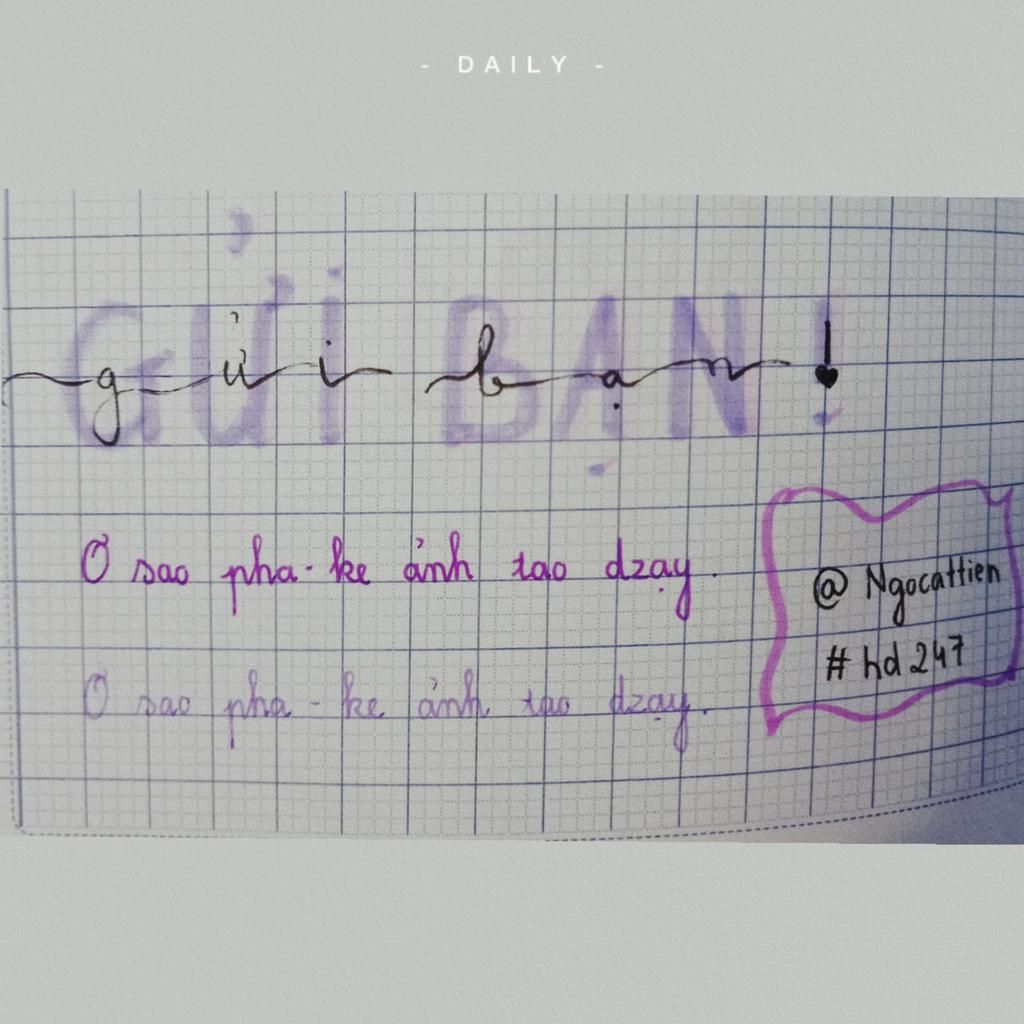 - DAILY -
GỬI BẠN!
gửi bạn!
Ơ sao pha-ke ảnh tao dzạy.
Ơ sao pha-ke ảnh tao dzạy.
@Ngocattien
#hd247